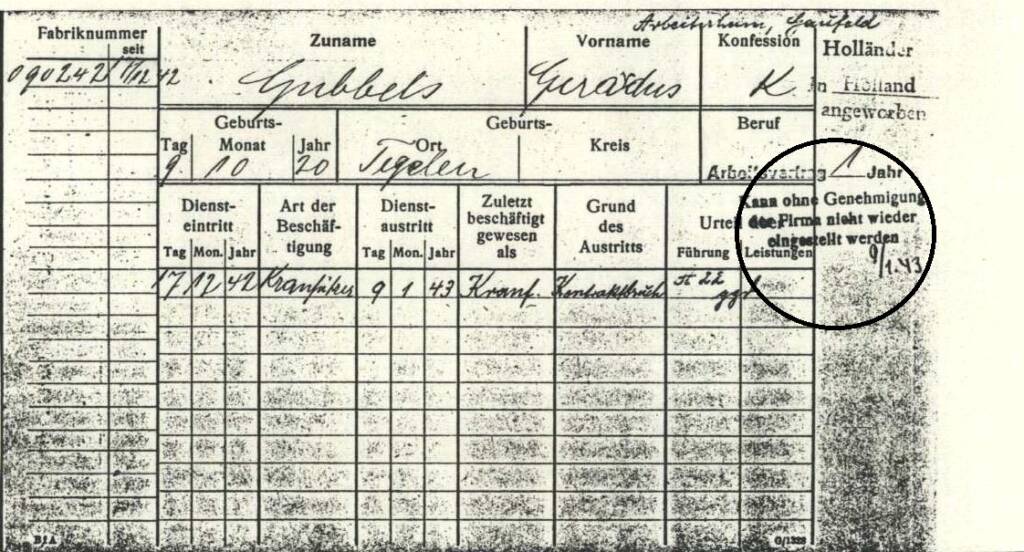 Arbeiterheim, Gaufeld
Fabriknummer
seit
Zuname
Vorname
Konfession
Holländer
090242 17/12 42
Gubbels
Gerardus
K
in Holland
angeworben
Geburts-
Geburts-
Beruf
Tag Monat Jahr
Ort
Kreis
9 10 20
Tegelen
Arbeitsvertrag 1 Jahr
Dienst-
eintritt
Art der
Beschäf-
tigung
Dienst-
austritt
Zuletzt
beschäftigt
gewesen
als
Grund
des
Austritts
Urteil über
Kann ohne Genehmigung
der Firma nicht wieder
eingestellt werden
9/1.43
Tag Mon. Jahr
Tag Mon. Jahr
Führung Leistungen
17 12 42 Kranführer 9 1 43 Kranf. Kontraktbruch
B1A